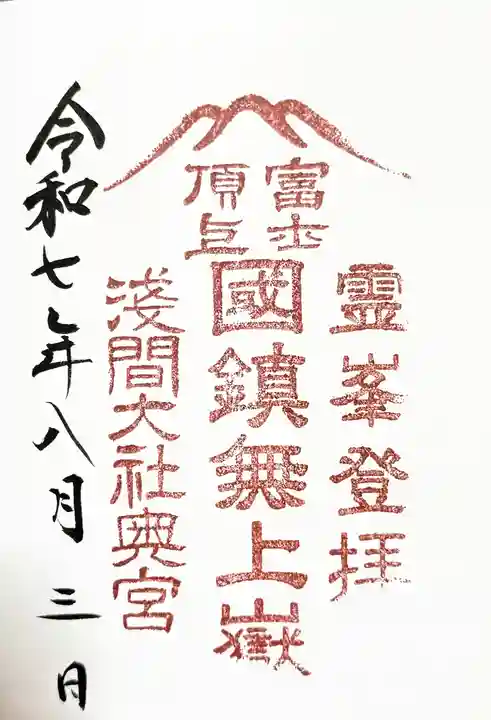 富士
頂上
霊峯登拝
國鎮無上嶽
淺間大社奥宮
令和七年八月三日